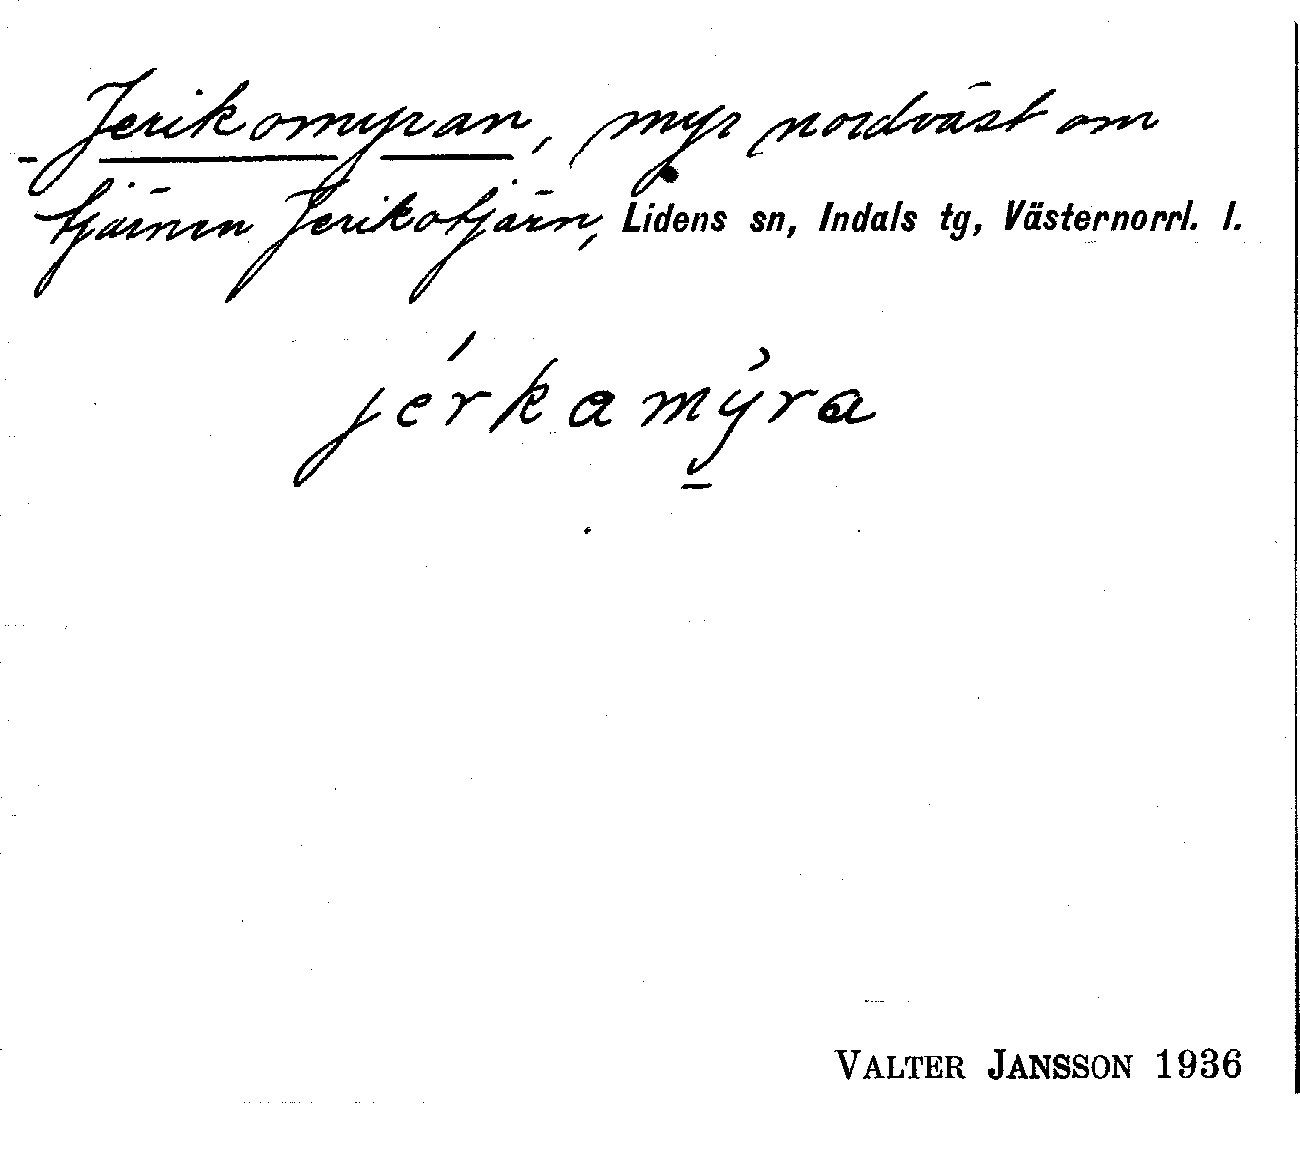 Jerikomyran, myr nordväst om
tjärnen Jerikotjärn, Lidens sn, Indals tg, Västernorrl. l.
jérkamy̆ra
VALTER JANSSON 1936